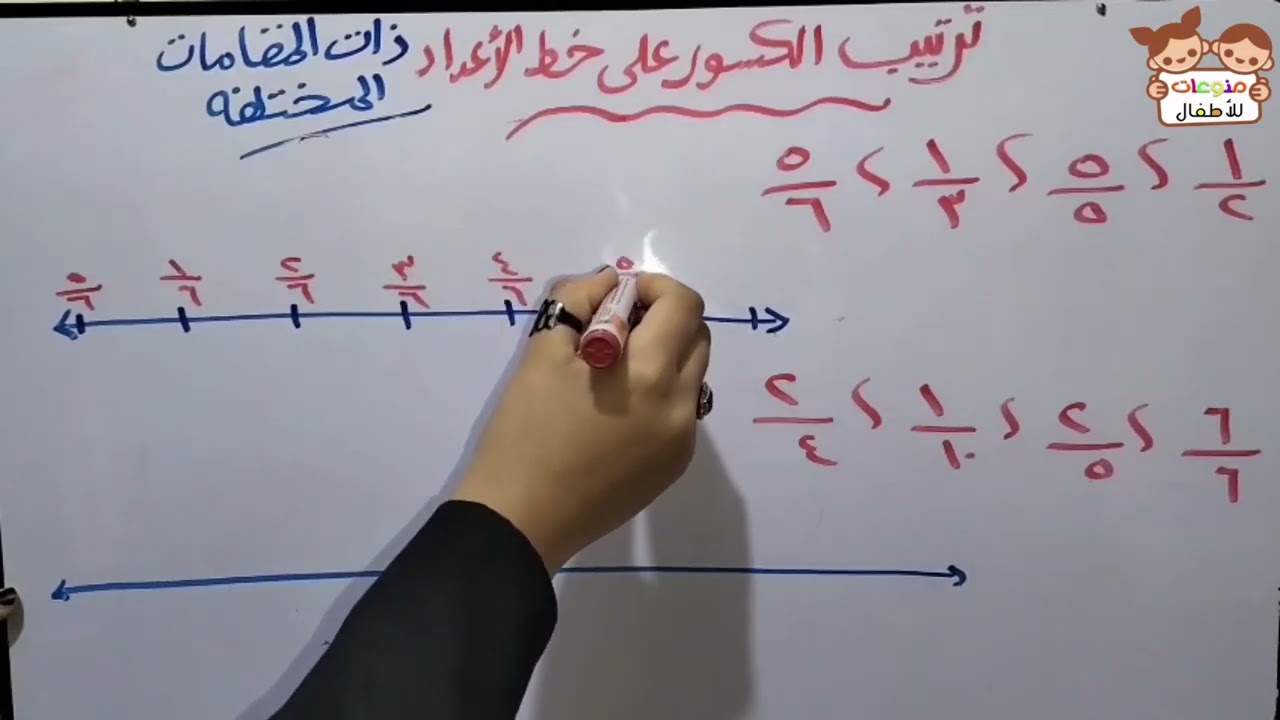 ترتيب الكسور على خط الأعداد ذات المقامات
المختلفة
منوعات
للأطفال
١/٢ ، ٥/٥ ، ١/٣ ، ٥/٦
٠/٦ ١/٦ ٢/٦ ٣/٦ ٤/٦ ٥
٦/٦ ، ٢/٥ ، ١/١٠ ، ٢/٤